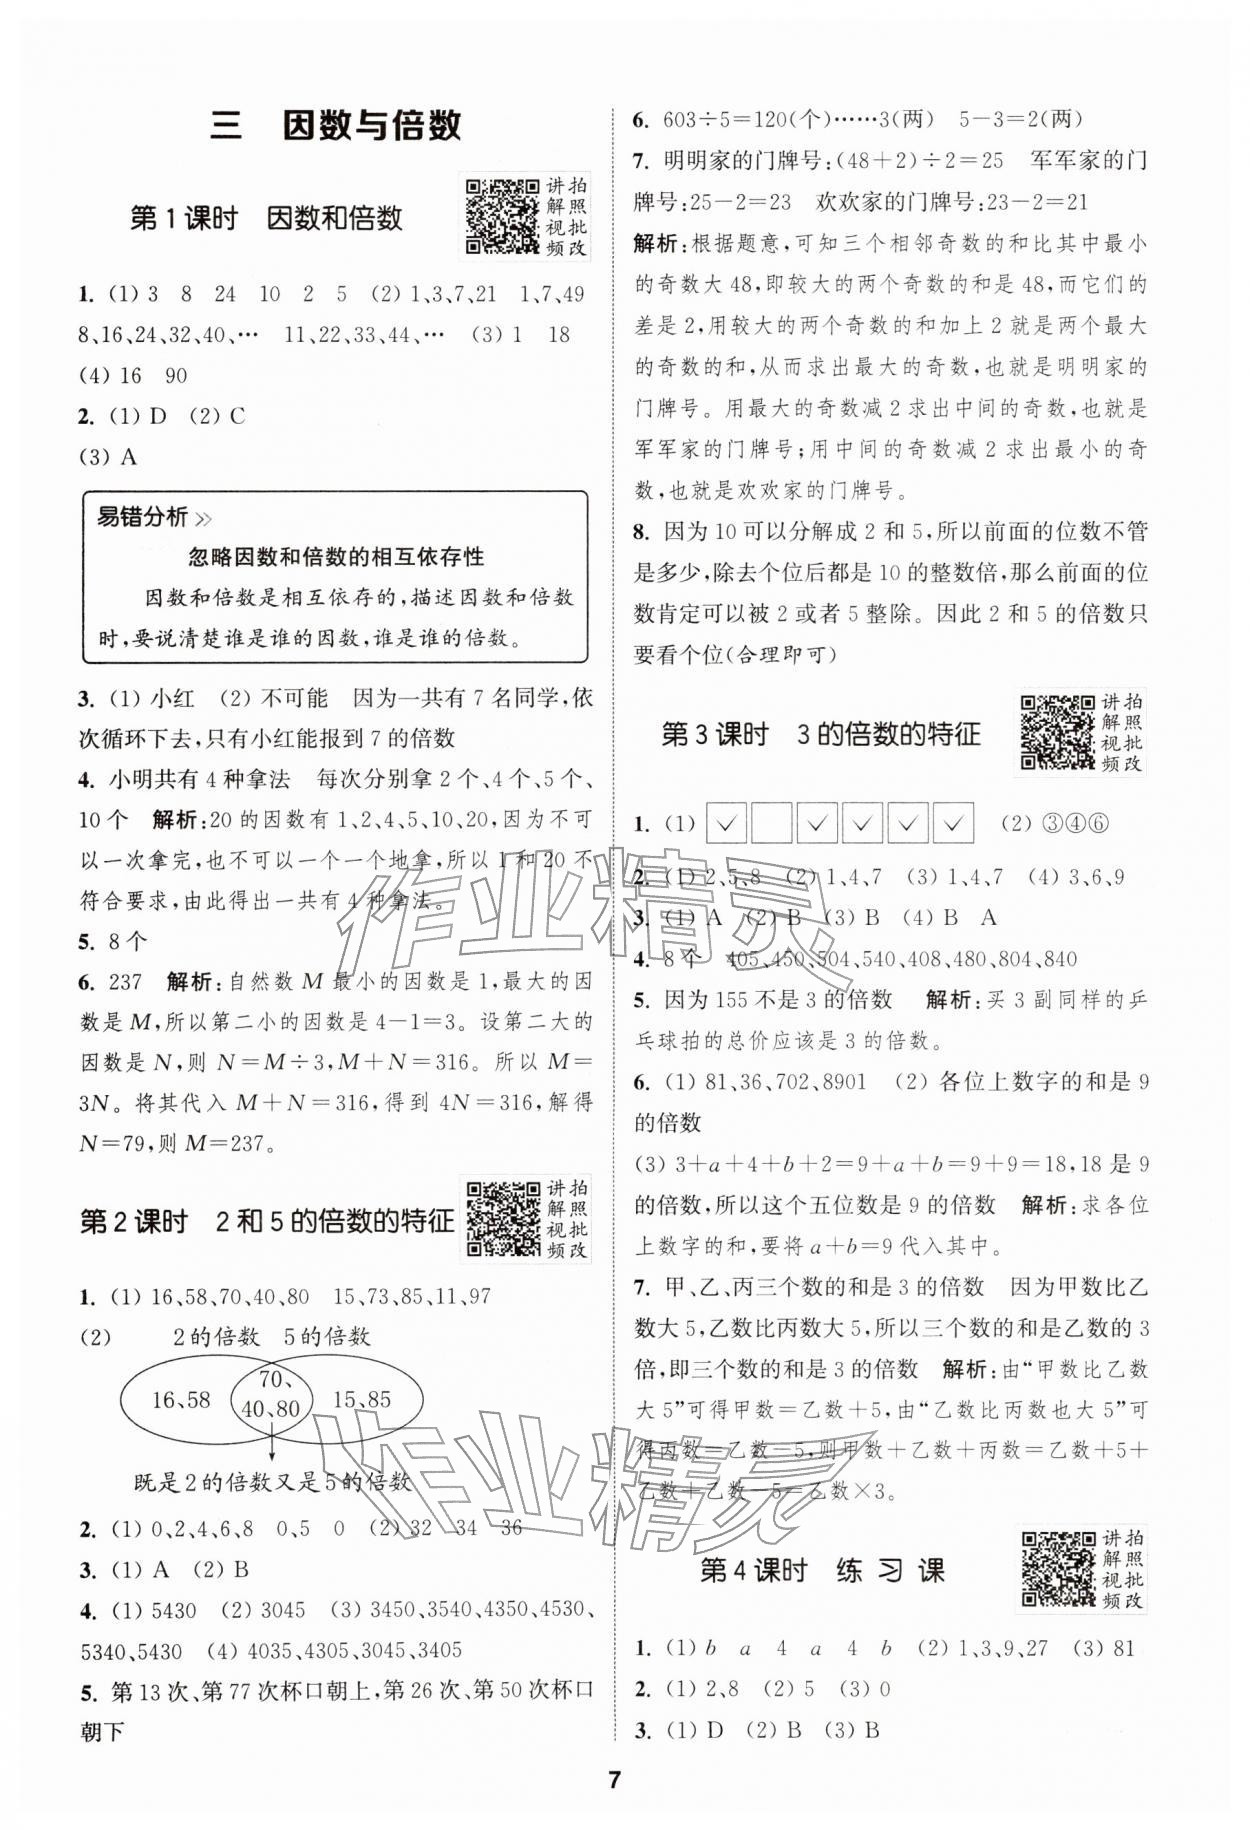 三 因数与倍数
第1课时 因数和倍数
讲拍
解照
视批
频改
1. (1) 3 8 24 10 2 5 (2) 1、3、7、21 1、7、49
8、16、24、32、40、… 11、22、33、44、… (3) 1 18
(4) 16 90
2. (1) D (2) C
(3) A
易错分析
忽略因数和倍数的相互依存性
因数和倍数是相互依存的,描述因数和倍数
时,要说清楚谁是谁的因数,谁是谁的倍数。
3. (1) 小红 (2) 不可能 因为一共有7名同学,依
次循环下去,只有小红能报到7的倍数
4. 小明共有4种拿法 每次分别拿2个、4个、5个、
10个 解析:20的因数有1、2、4、5、10、20,因为不可
以一次拿完,也不可以一个一个地拿,所以1和20不
符合要求,由此得出一共有4种拿法。
5. 8个
6. 237 解析:自然数M最小的因数是1,最大的因
数是M,所以第二小的因数是4−1=3。设第二大的
因数是N,则N=M÷3,M+N=316。所以M=
3N。将其代入M+N=316,得到4N=316,解得
N=79,则M=237。
第2课时 2和5的倍数的特征
讲拍
解照
视批
频改
1. (1) 16、58、70、40、80 15、73、85、11、97
(2) 2的倍数 5的倍数
16、58 70、40、80 15、85
既是2的倍数又是5的倍数
2. (1) 0、2、4、6、8 0、5 0 (2) 32 34 36
3. (1) A (2) B
4. (1) 5430 (2) 3045 (3) 3450、3540、4350、4530、
5340、5430 (4) 4035、4305、3045、3405
5. 第13次、第77次杯口朝上,第26次、第50次杯口
朝下
6. 603÷5=120(个)……3(两) 5−3=2(两)
7. 明明家的门牌号:(48+2)÷2=25 军军家的门
牌号:25−2=23 欢欢家的门牌号:23−2=21
解析:根据题意,可知三个相邻奇数的和比其中最小
的奇数大48,即较大的两个奇数的和是48,而它们的
差是2,用较大的两个奇数的和加上2就是两个最大
的奇数的和,从而求出最大的奇数,也就是明明家的
门牌号。用最大的奇数减2求出中间的奇数,也就是
军军家的门牌号;用中间的奇数减2求出最小的奇
数,也就是欢欢家的门牌号。
8. 因为10可以分解成2和5,所以前面的位数不管
是多少,除去个位后都是10的整数倍,那么前面的位
数肯定可以被2或者5整除。因此2和5的倍数只
要看个位(合理即可)
第3课时 3的倍数的特征
讲拍
解照
视批
频改
1. (1) ✓ ✓ ✓ ✓ ✓ (2) ③④⑥
2. (1) 2、5、8 (2) 1、4、7 (3) 1、4、7 (4) 3、6、9
3. (1) A (2) B (3) B (4) B A
4. 8个 405、450、504、540、408、480、804、840
5. 因为155不是3的倍数 解析:买3副同样的乒
乓球拍的总价应该是3的倍数。
6. (1) 81、36、702、8901 (2) 各位上数字的和是9
的倍数
(3) 3+a+4+b+2=9+a+b=9+9=18,18是9
的倍数,所以这个五位数是9的倍数 解析:求各位
上数字的和,要将a+b=9代入其中。
7. 甲、乙、丙三个数的和是3的倍数 因为甲数比乙
数大5,乙数比丙数大5,所以三个数的和是乙数的3
倍,即三个数的和是3的倍数 解析:由“甲数比乙数
大5”可得甲数=乙数+5,由“乙数比丙数也大5”可
得丙数=乙数−5,则甲数+乙数+丙数=乙数+5+
乙数+乙数−5=乙数×3。
第4课时 练习课
讲拍
解照
视批
频改
1. (1) b a 4 a 4 b (2) 1、3、9、27 (3) 81
2. (1) 2、8 (2) 5 (3) 0
3. (1) D (2) B (3) B
7
作业精灵
作业精灵